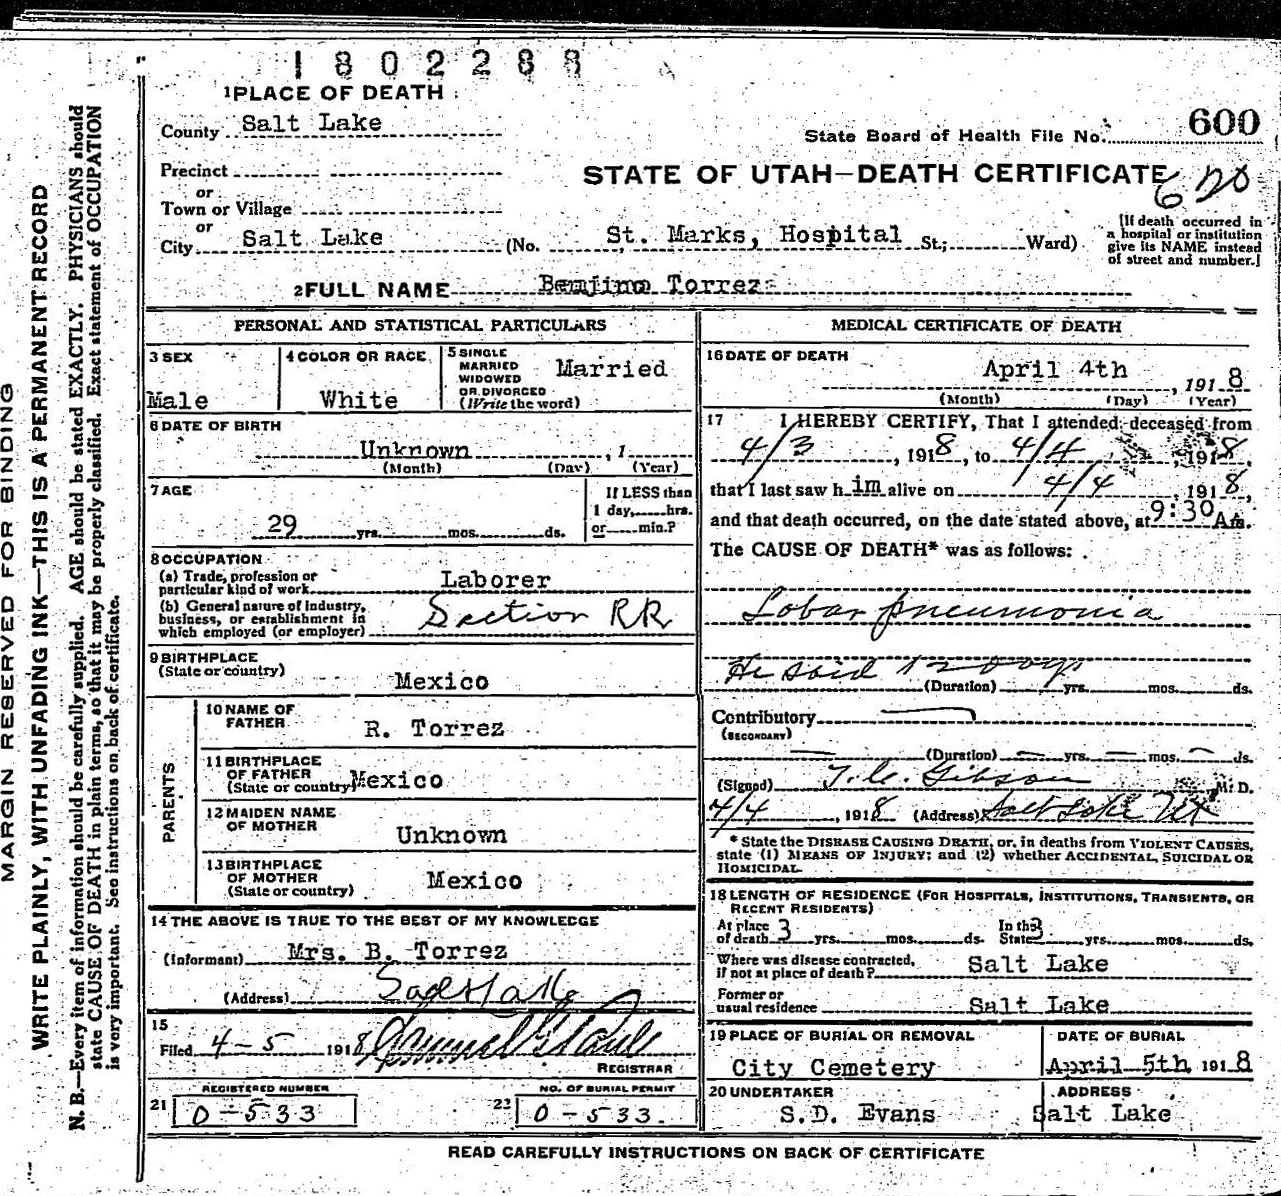 1802288
1 PLACE OF DEATH
County Salt Lake
State Board of Health File No. 600
Precinct
STATE OF UTAH—DEATH CERTIFICATE
or
Town or Village
or
City Salt Lake (No. St. Marks, Hospital St.; Ward)
[If death occurred in
a hospital or institution
give its NAME instead
of street and number.]
2 FULL NAME Torrez
PERSONAL AND STATISTICAL PARTICULARS
3 SEX
Male
4 COLOR OR RACE
White
5 SINGLE
MARRIED
WIDOWED
OR DIVORCED
(Write the word)
Married
6 DATE OF BIRTH
Unknown , 1
(Month) (Day) (Year)
7 AGE
29 yrs. mos. ds.
If LESS than
1 day, hrs.
or min.?
8 OCCUPATION
(a) Trade, profession or
particular kind of work Laborer
(b) General nature of industry,
business, or establishment in
which employed (or employer) Section RR
9 BIRTHPLACE
(State or country)
Mexico
PARENTS
10 NAME OF
FATHER R. Torrez
11 BIRTHPLACE
OF FATHER
(State or country) Mexico
12 MAIDEN NAME
OF MOTHER
Unknown
13 BIRTHPLACE
OF MOTHER
(State or country) Mexico
14 THE ABOVE IS TRUE TO THE BEST OF MY KNOWLEDGE
(Informant) Mrs. B. Torrez
(Address)
15
Filed 4-5 1918
REGISTRAR
REGISTERED NUMBER
21 0-533
NO. OF BURIAL PERMIT
22 0-533
MEDICAL CERTIFICATE OF DEATH
16 DATE OF DEATH
April 4th , 1918
(Month) (Day) (Year)
17 I HEREBY CERTIFY, That I attended deceased from
4/3 , 1918, to 4/4 1918,
that I last saw him alive on 4/4 , 1918,
and that death occurred, on the date stated above, at 9:30 Am.
The CAUSE OF DEATH* was as follows:
Lobar pneumonia
He said 12 days
(Duration) yrs. mos. ds.
Contributory
(SECONDARY)
(Duration) yrs. mos. ds.
(Signed) T. C. Gibson M. D.
4/4 , 1918 (Address) Salt Lake Ut
* State the DISEASE CAUSING DEATH, or, in deaths from VIOLENT CAUSES,
state (1) MEANS OF INJURY; and (2) whether ACCIDENTAL, SUICIDAL OR
HOMICIDAL.
18 LENGTH OF RESIDENCE (FOR HOSPITALS, INSTITUTIONS, TRANSIENTS, OR
RECENT RESIDENTS)
At place
of death 3 yrs. mos. ds.
In the
State 3 yrs. mos. ds.
Where was disease contracted,
if not at place of death? Salt Lake
Former or
usual residence Salt Lake
19 PLACE OF BURIAL OR REMOVAL
City Cemetery
DATE OF BURIAL
April 5th, 1918
20 UNDERTAKER
S.D. Evans
ADDRESS
Salt Lake
READ CAREFULLY INSTRUCTIONS ON BACK OF CERTIFICATE
MARGIN RESERVED FOR BINDING
WRITE PLAINLY, WITH UNFADING INK—THIS IS A PERMANENT RECORD
N. B.—Every item of information should be carefully supplied. AGE should be stated EXACTLY. PHYSICIANS should
state CAUSE OF DEATH in plain terms, so that it may be properly classified. Exact statement of OCCUPATION
is very important. See instructions on back of certificate.